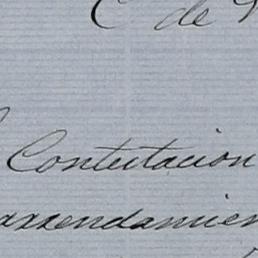 C de
Contestacion
arrendamien